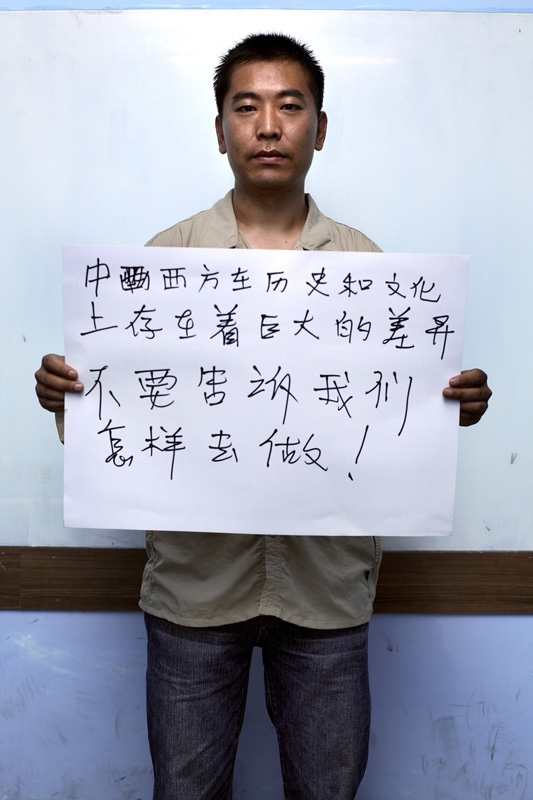 中西方在历史和文化
上存在着巨大的差异
不要告诉我们
怎样去做！